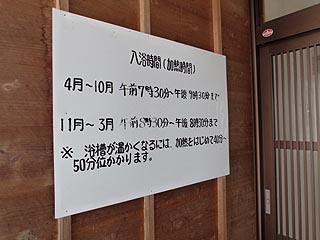 入浴時間(加熱時間)
4月～10月 午前7時30分～午後 9時30分まで
11月～3月 午前8時30分～午後 8時30分まで
※ 浴槽が温かくなるには、加熱をはじめて40分～
50分位かかります。